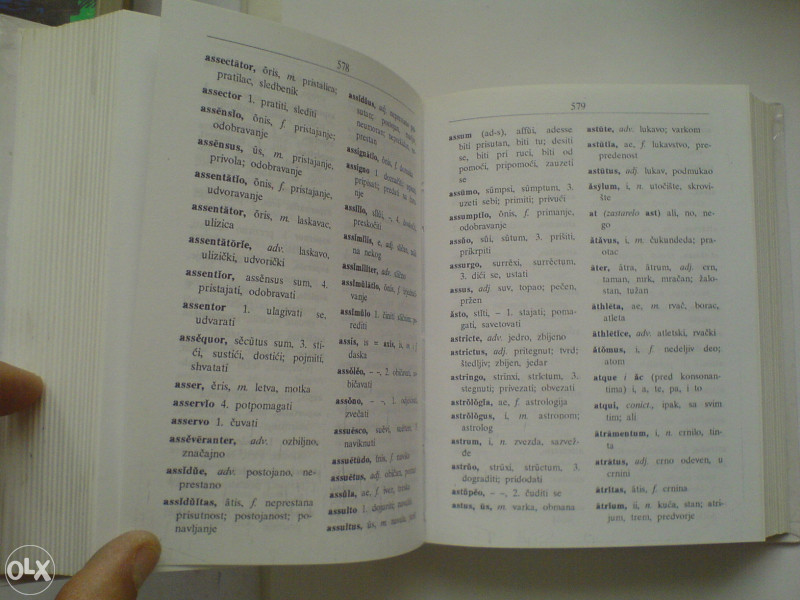 578
assectātor, ōris, m. pristalica;
pratilac, sledbenik
assector 1. pratiti, slediti
assēnsĭo, ōnis, f. pristajanje;
odobravanje
assēnsus, ūs, m. pristajanje,
privola; odobravanje
assentātĭo, ōnis, f. pristajanje,
udvoravanje
assentātor, ōris, m. laskavac,
ulizica
assentātōrĭe, adv. laskavo,
ulizički, udvorički
assentior, assēnsus sum, 4.
pristajati, odobravati
assentor 1. ulagivati se,
udvarati
assĕquor, sĕcūtus sum, 3. sti-
ći, sustići, dostići; pojmiti,
shvatati
asser, ĕris, m. letva, motka
asservĭo 4. potpomagati
asservo 1. čuvati
assĕvēranter, adv. ozbiljno,
značajno
assĭdŭe, adv. postojano, ne-
prestano
assĭdŭĭtas, ātis, f. neprestana
prisutnost; postojanost; po-
navljanje
assĭdŭus, adj.
prestan
assignātĭo, ōnis, f.
assigno 1.
nje
assĭlĭo,
preskočiti
assĭmĭlis, e, adj. slično,
na nekog
assĭmĭlĭter, adv. slično
assĭmŭlātĭo, ōnis, f.
vanje
assĭmŭlo 1. činiti sličnim,
rediti
assis, is = axis, is, m.
daska
assŏlĕo, – –, 2. običavati,
bičavati
assŏno, – –, 1.
zvečati
assuēsco, suēvi, suētum 3.
naviknuti
assuētūdo, ĭnis, f. navika
assuētus, adj. običan,
assŭla, ae, f. iver, treska
assulto 1.
assultus, ūs, m. navala,
579
assum (ad-s), affŭi, adesse
biti prisutan, biti tu; desiti
se, biti pri ruci, biti od
pomoći, pripomoći, zauzeti
se
assūmo, sūmpsi, sūmptum, 3.
uzeti sebi; primiti; privući
assumptĭo, ōnis, f. primanje,
odobravanje
assŭo, sŭi, sūtum, 3. prišiti,
prikrpiti
assurgo, surrēxi, surrēctum,
3. dići se, ustati
assus, adj suv, topao; pečen,
pržen
ásto, stĭti, – 1. stajati; poma-
gati, savetovati
astricte, adv. jedro, zbijeno
astrictus, adj. pritegnut; tvrd;
štedljiv; zbijen, jedar
astringo, strinxi, strĭctum, 3.
stegnuti; privezati; obvezati
astrŏlŏgĭa, ae, f. astrologija
astrŏlŏgus, i, m. astronom;
astrolog
astrum, i, n. zvezda, sazvež-
đe
astrŭo, strūxi, strūctum, 3.
dograditi; pridodati
astŭpĕo, – –, 2. čuditi se
astus, ūs, m. varka, obmana
astūte, adv. lukavo; varkom
astūtĭa, ae, f. lukavstvo, pre-
predenost
astūtus, adj. lukav, podmukao
ăsȳlum, i, n. utočište, skrovi-
šte
at (zastarelo ast) ali, no, ne-
go
ătăvus, i, m. čukundeda; pra-
otac
āter, ātra, ātrum, adj. crn,
taman, mrk, mračan; žalo-
stan, tužan
āthlēta, ae, m. rvač, borac,
atleta
āthlētĭce, adv. atletski, rvački
ătŏmus, i, f. nedeljiv deo;
atom
atque i āc (pred konsonan-
tima) i, a, te, pa, i to
atqui, conict., ipak, sa svim
tim; ali
ātrāmentum, i, n. crnilo, tin-
ta
ātrātus, adj. crno odeven, u
crnini
ātrĭtas, ātis, f. crnina
ātrĭum, ii, n. kuća, stan; atri-
jum, trem, predvorje
OLX